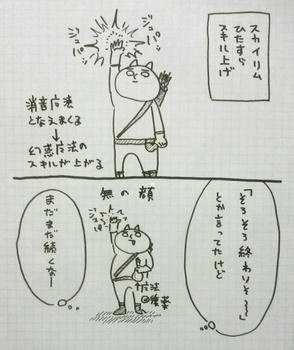 スカイリム
ひたすら
スキル上げ
ジュパッ
ジュパッ
消音魔法
となえまくる
↓
幻惑魔法の
スキルが上がる
「そろそろ終わりそ〜」
とか言ってたけど
無の顔
まだまだ続くなー